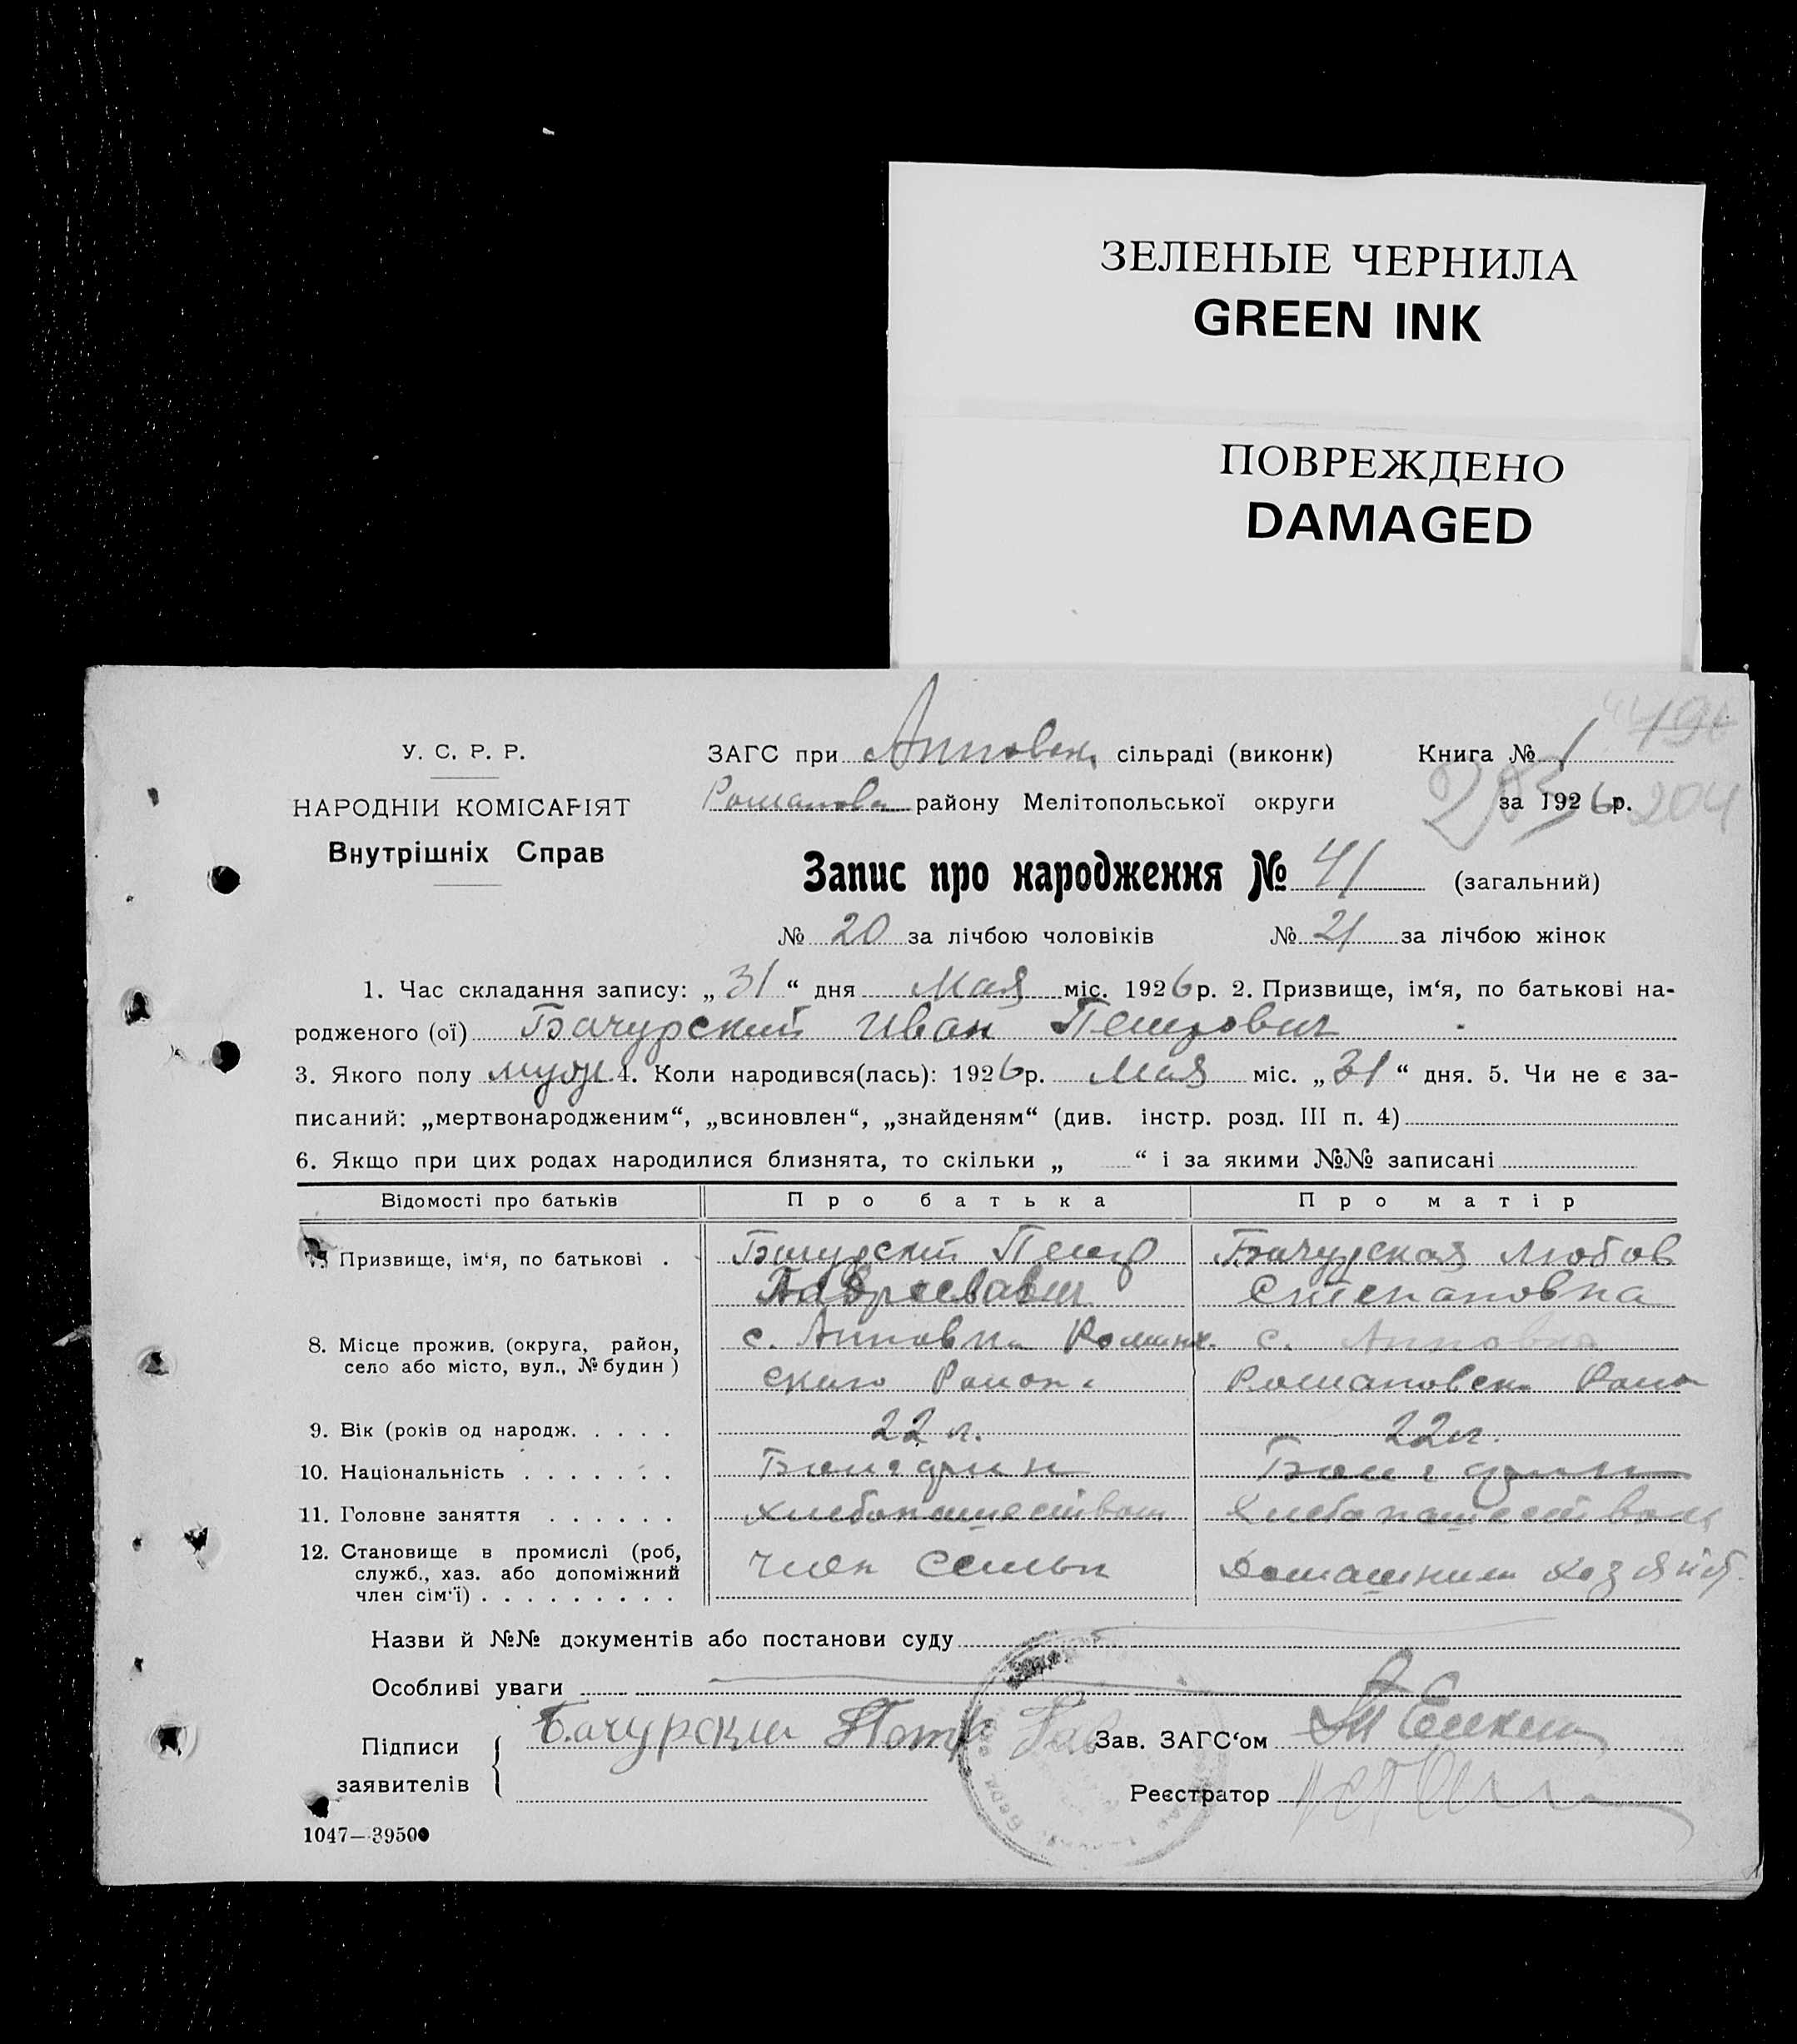 ЗЕЛЕНЫЕ ЧЕРНИЛА
GREEN INK
ПОВРЕЖДЕНО
DAMAGED
У. С. Р. Р.
НАРОДНІЙ КОМІСАРІЯТ
Внутрішніх Справ
ЗАГС при Анновск, сільраді (виконк) Книга № 1
Романовс району Мелітопольської округи за 1926 р. 204
Запис про народження № 41 (загальний)
№ 20 за лічбою чоловіків № 21 за лічбою жінок
1. Час складання запису: „31“ дня Мая міс. 1926 р. 2. Призвище, ім‘я, по батькові на-
родженого (ої) Бачурский Иван Петрович
3. Якого полу муж. 4. Коли народився(лась): 1926 р. Мая міс. „31“ дня. 5. Чи не є за-
писаний: „мертвонародженим“, „всиновлен“, „знайденям“ (див. інстр. розд. III п. 4)
6. Якщо при цих родах народилися близнята, то скільки „ “ і за якими №№ записані
Відомості про батьків Про батька Про матір
7. Призвище, ім‘я, по батькові . Бачурский Петр Бачурская Любов
Степановна
8. Місце прожив. (округа, район, село або місто, вул., № будин) с. Анновка Романов. с. Анновка
ского Района Романовск Райо
9. Вік (років од народж. . . . . 22 л. 22 л.
10. Національність . . . . . . .
11. Головне заняття . . . . . . Хлебопашеством Хлебопашеством
12. Становище в промислі (роб, служб., хаз. або допоміжний член сім‘ї) . . . . . . . . . член семьи Домашним хозяйст.
Назви й №№ документів або постанови суду
Особливі уваги
Підписи заявителів Бачурский Петр Гав Зав. ЗАГС‘ом
Реєстратор
1047—39500